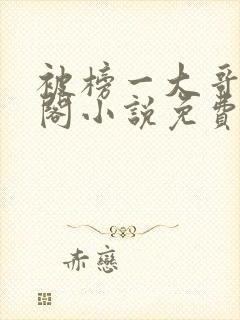 被榜一大哥
閣小說免費
赤戀